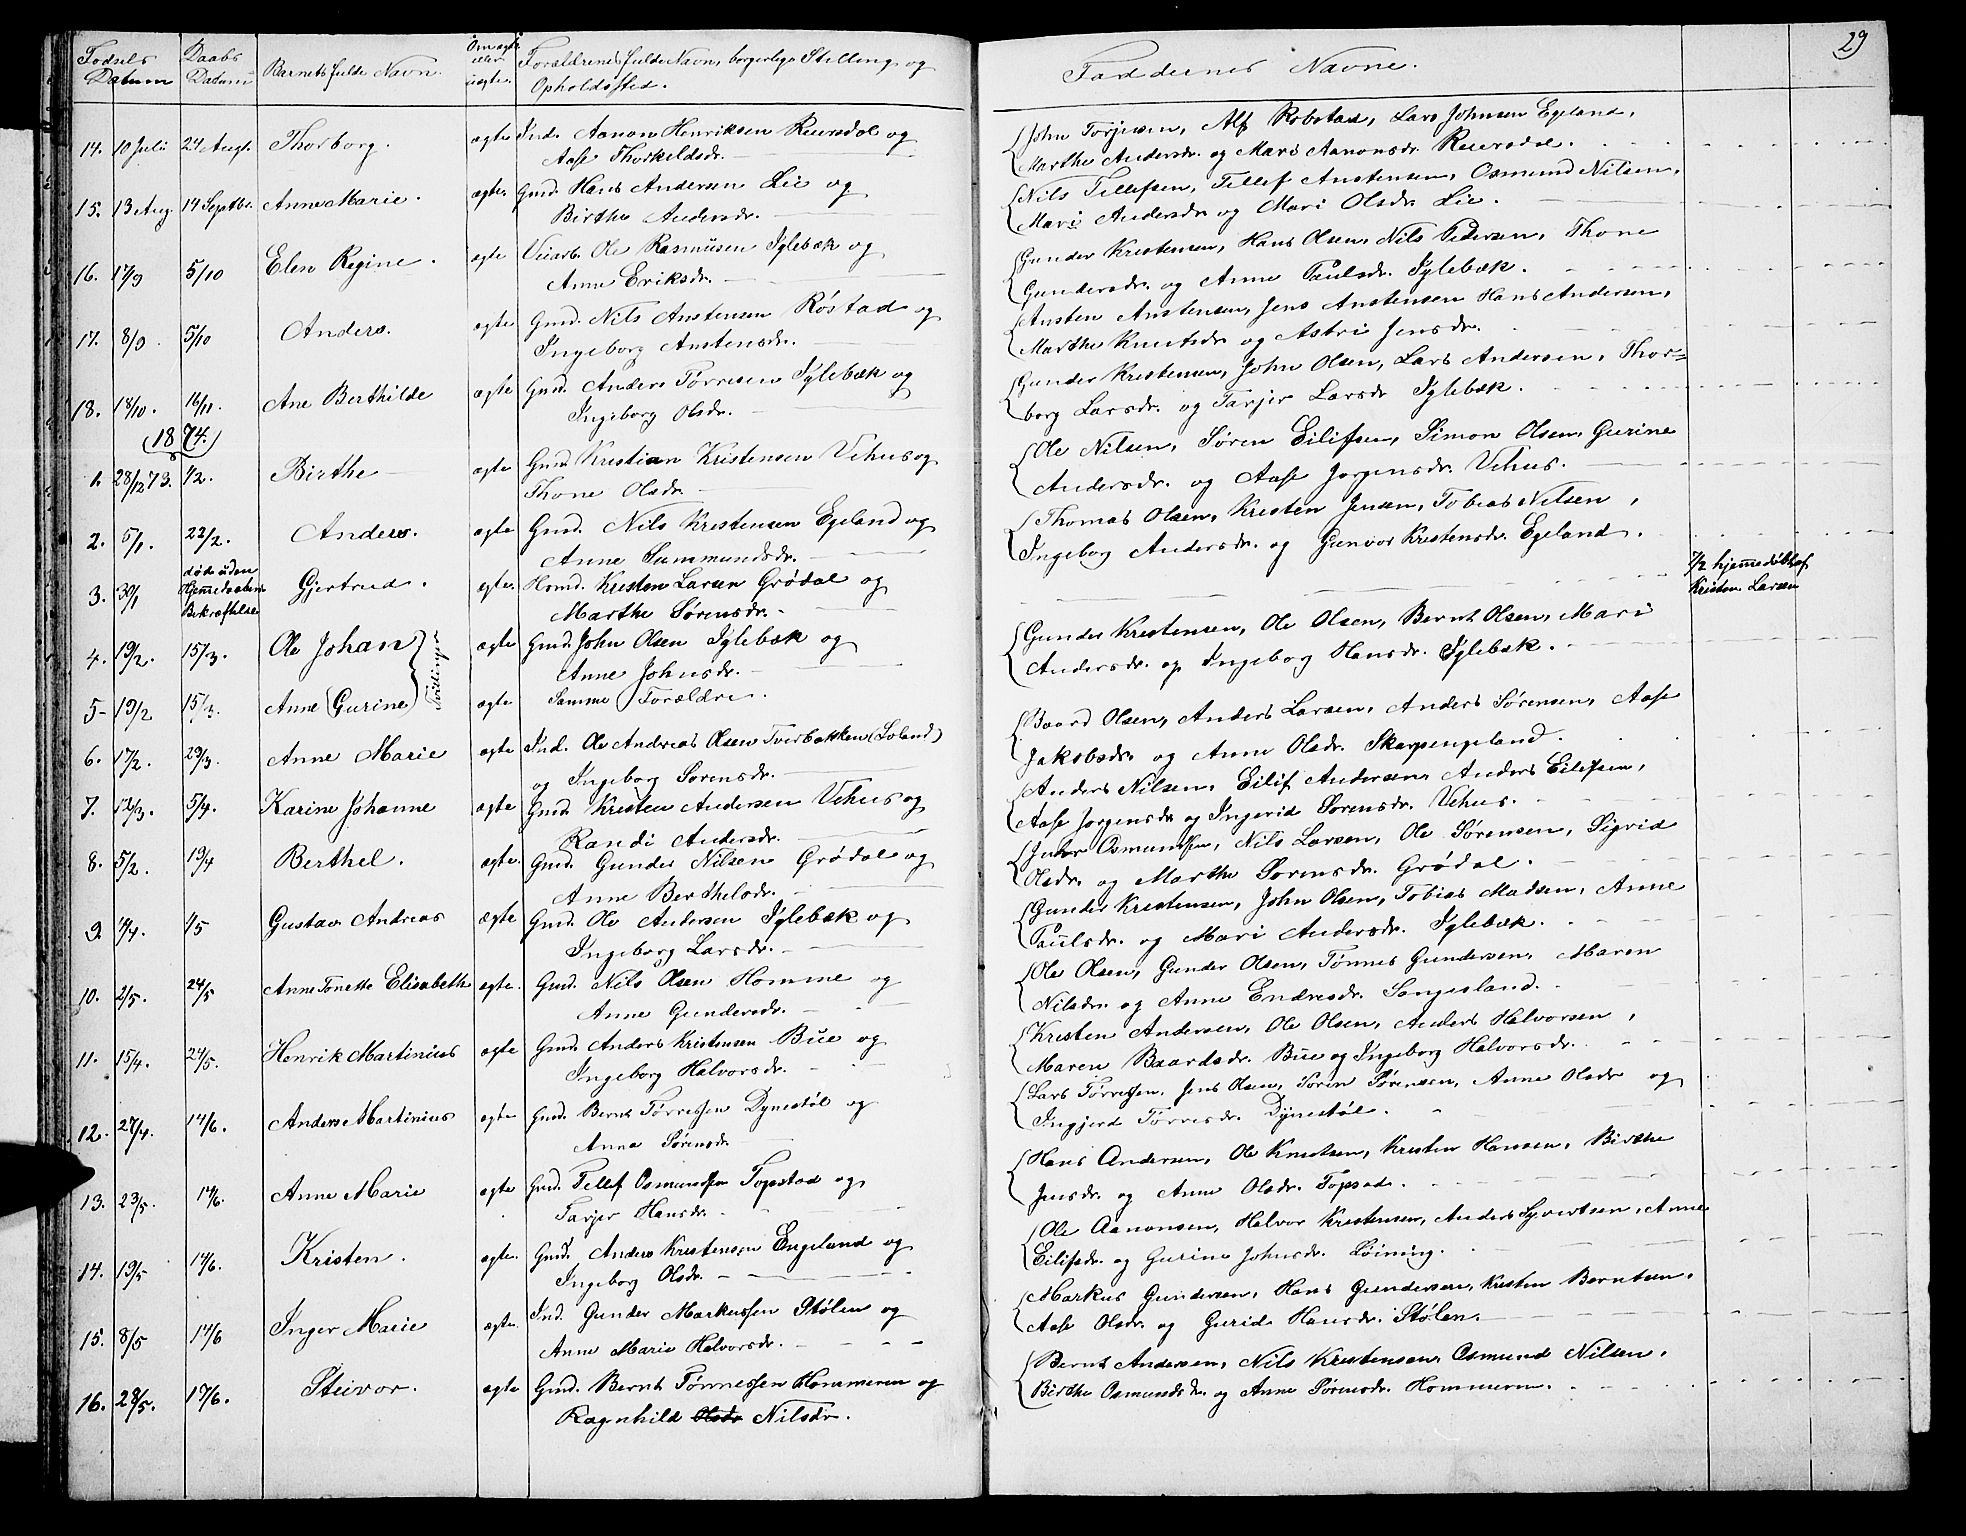 Fødsels Datum | Daabs Datum | Barnets fulde Navn. | Om ægte eller uægte. | Forældrenes fulde Navn, borgerlige Stilling og Opholdssted. | Faddernes Navne. | 29
14. 10 Juli 24 Augt. Thorborg. ægte Ind. Aanon Henriksen Reiersdal og
Aase Thorkeldsdr.
John Torjesen, Alf Robstad, Lars Johnsen Egeland,
Marthe Andersdr. og Mari Aanonsdr. Reiersdal.
15. 13 Aug. 14 Septbr. Anne Marie. ægte. Gmd. Hans Andersen Lie og
Birthe Andersdr.
Nils Tellefsen, Tellef Anstensen, Osmund Nilsen,
Mari Andersdr og Mari Olsdr. Lie.
16. 17/9 5/10 Elen Regine. ægte Veiarb. Ole Rasmusen Iglebæk og
Anne Eriksdr.
Gunder Kristensen, Hans Olsen, Nils Pedersen, Thone
Gundersdr. og Anne Paulsdr. Iglebæk.
17. 8/9. 5/10 Anders. ægte Gmd. Nils Anstensen Røstad og
Ingeborg Anstensdr.
Ansten Anstensen, Jens Anstensen Hans Andersen,
Marthe Knutsdr og Astri Jensdr.
18. 18/10. 16/11. Ane Berthilde ægte Gmd. Anders Tørresen Iglebæk og
Ingeborg Olsdr.
Gunder Kristensen, John Olsen, Lars Andersen, Thor=
borg Larsdr. og Tarjer Larsdr Iglebæk.
(1874.)
1. 28/12 73. 1/2. Birthe ægte Gmd. Kristian Kristensen Vehus og
Thone Olsdr.
Ole Nilsen, Søren Eilifsen, Simon Olsen, Gurine
Andersdr. og Aase Jørgensdr. Vehus.
2. 5/1. 22/2. Anders. ægte Gmd. Nils Kristensen Egeland og
Anne Sammundsdr.
Thomas Olsen, Kristen Jensen, Tobias Nilsen,
Ingeborg Andersdr. og Gunvor Kristensdr. Egeland.
3. 30/1 døde uden Hjemmedaabens Bekræftelse Gjertrud. ægte. Hmd. Kristen Larsen Grødal og
Marthe Sørensdr.
7/2 hjemmedøbt af
Kristen Larsen
4. 19/2. 15/3. Ole Johan ægte Gmd. John Olsen Iglebæk og
Anne Johnsdr.
Tvillinger
Gunder Kristensen, Ole Olsen, Bernt Olsen, Mari
Andersdr. og Ingeborg Hansdr. Iglebæk.
5- 19/2 15/3. Anne Gurine ægte Samme Forældre.
Baard Olsen, Anders Larsen, Anders Sørensen, Aase
Jaksbsdr. og Anne Olsdr. Skarpengeland.
6. 17/2. 29/3. Anne Marie ægte Ind. Ole Andreas Olsen Tverbakken (Loland)
og Ingeborg Sørensdr.
Anders Nilsen, Eilif Andersen, Anders Eilifsen,
Aase Jørgensdr og Ingerid Sørensdr. Vehus.
7. 12/3. 5/4. Karine Johanne ægte Gmd. Kristen Andersen Vehus og
Randi Andersdr.
8. 5/2. 19/4 Berthel. ægte. Gmd. Gunder Nilsen Grødal og
Anne Berthelsdr.
Osmundsen, Nils Larsen, Ole Sørensen, Sigrid
Olsdr. og Marthe Sørensdr. Grødal.
9 14/4. 1/5 Gustav Andreas ægte Gmd. Ole Andersen Iglebæk og
Ingeborg Larsdr.
Gunder Kristensen, John Olsen, Tobias Madsen, Anne
Paulsdr. og Mari Andersdr. Iglebæk.
10. 2/5. 24/5 Anne Tonette Elisabeth ægte. Gmd. Nils Olsen Homme og
Anne Gundersdr.
Ole Olsen, Gunder Olsen, Tønnes Gundersen, Maren
Nilsdr. og Anne Endresdr. Songesland.
11. 15/4. 24/5. Henrik Martinius ægte Gmd. Anders Kristensen Bue og
Ingeborg Halvorsdr.
Kristen Andersen, Ole Olsen, Anders Halvorsen,
Maren Baardsdr. Bue og Ingeborg Halvorsdr.
12. 27/4. 14/6. Anders Martinius ægte Gmd. Bernt Tørressen Dynestøl og
Anna Sørensdr
Lars Tørressen, Jens Olsen, Søren Sørensen, Anne Olsdr og
Ingjerd Tørresdr. Dynestøl.
13. 23/5. 14/6. Anne Marie ægte Gmd. Tellef Osmundsen Topstad og
Tarjer Hansdr.
Hans Andersen, Ole Knutsen, Kristen Hansen, Birthe
Jensdr. og Anne Olsdr. Topsad.
14. 19/5 14/6. Kristen. ægte. Gmd. Anders Kristensen Engeland og
Ingeborg Olsdr.
Ole Aanonsen, Halvor Kristensen, Anders Syvertsen, Anne
Eilifsdr. og Gurine Johnsdr. Løining.
15. 8/5 14/6 Inger Marie ægte. Ind. Gunder Markussen Stølen og
Anne Marie Halvorsdr.
Markus Gundersen, Hans Gundersen, Kristen Berntsen,
Aase Olsdr. og Gurid Hansdr. Stølen.
16. 28/5. 14/6. Steivor. ægte Gmd. Bernt Tønnessen Hommeren og
Ragnhild Olsdr Nilsdr.
Bernt Andersen, Nils Kristensen, Osmund Nilsen,
Birthe Osmundsdr. og Anne Sørensdr. Hommeren.